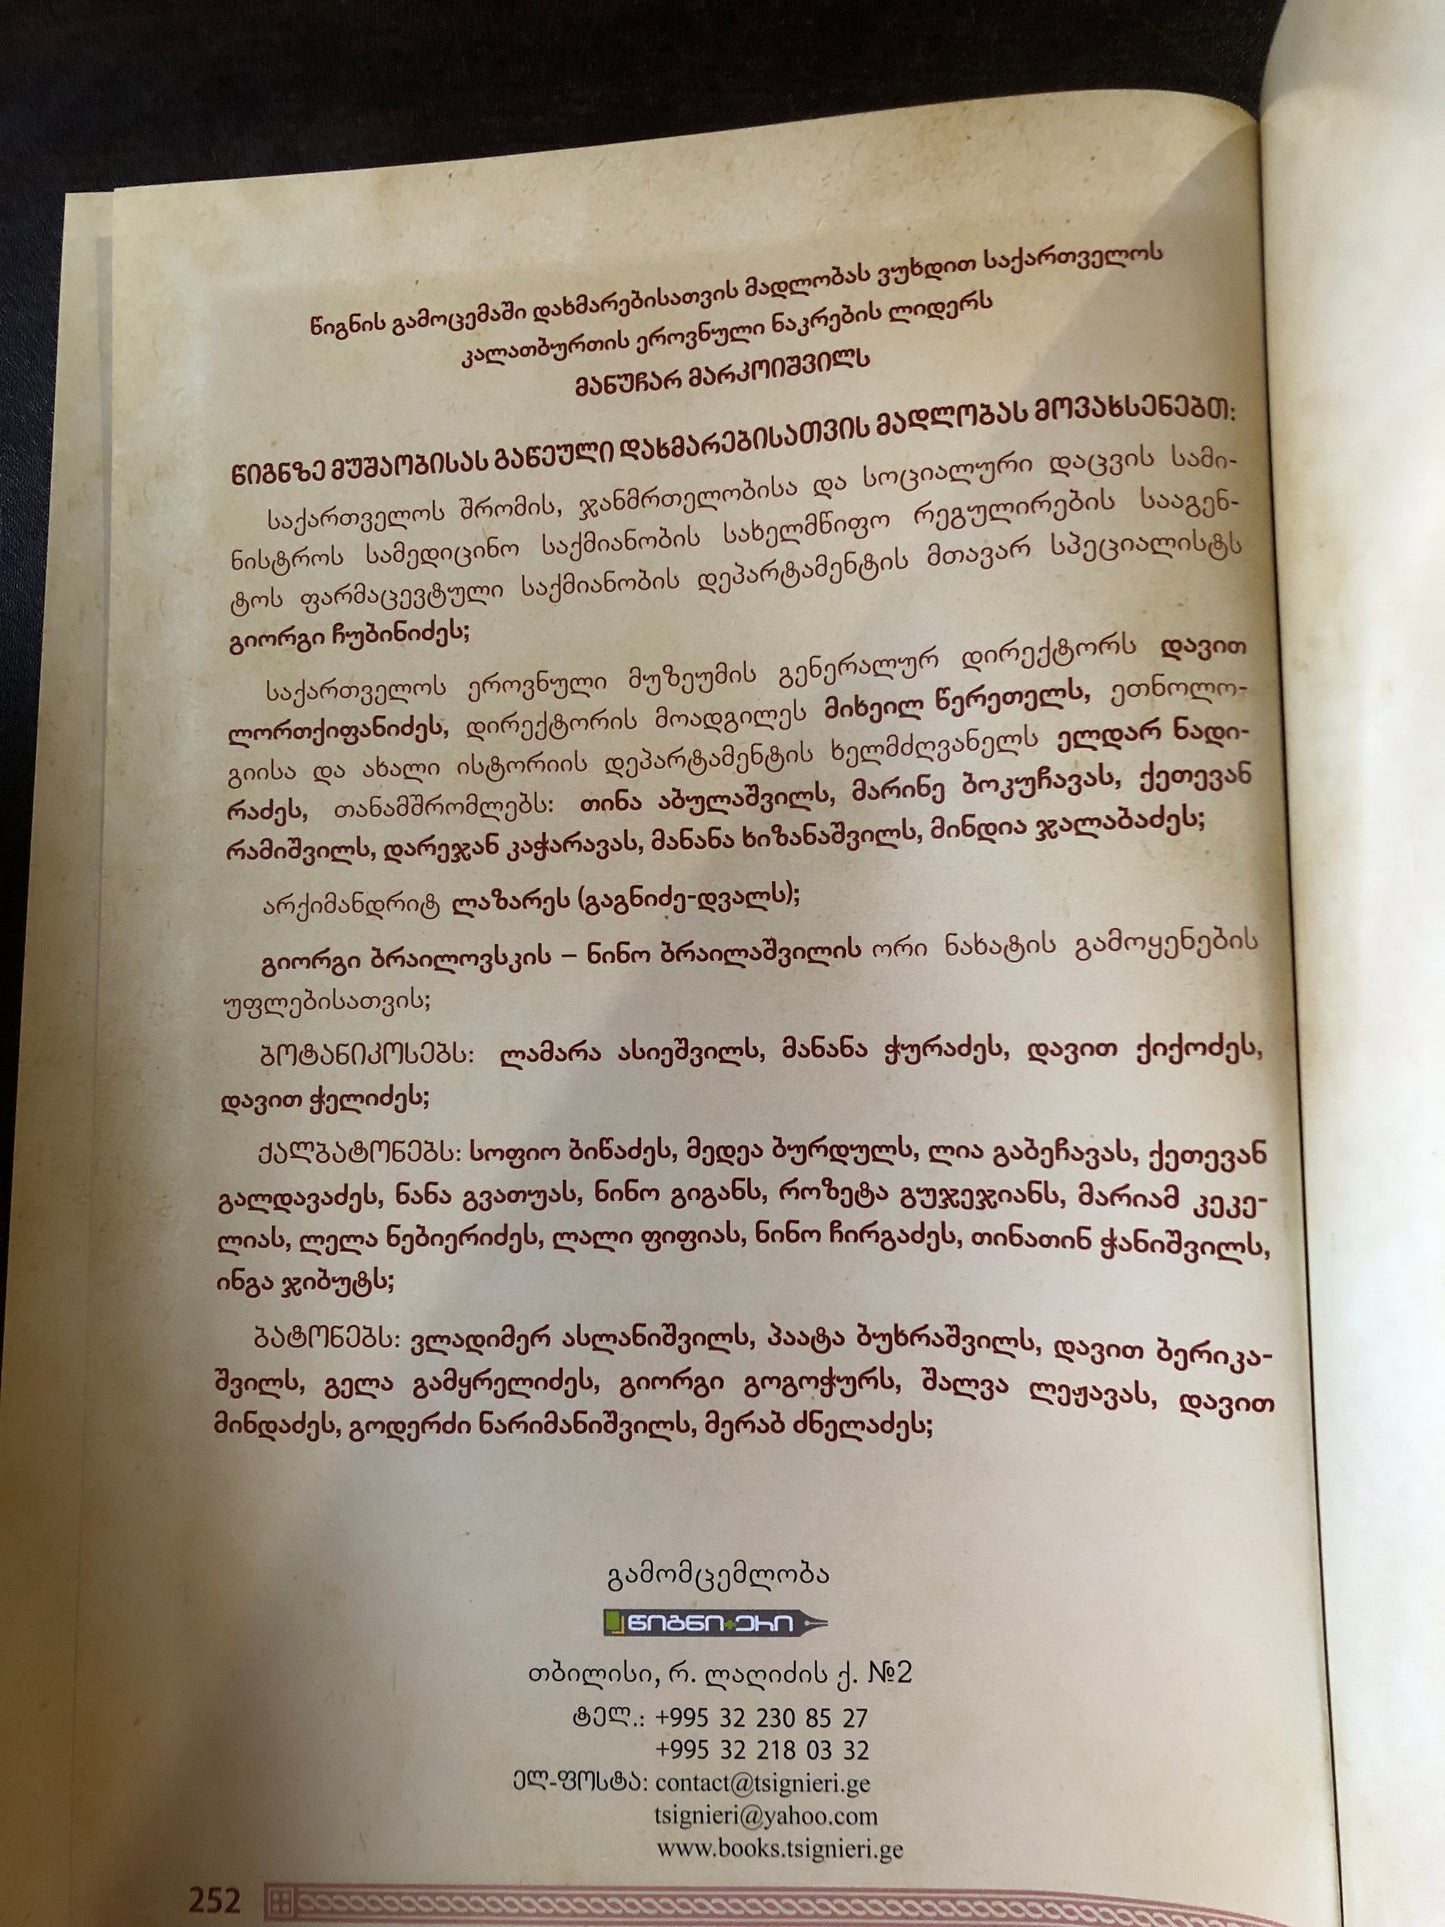 წიგნის გამოცემაში დახმარებისათვის მადლობას ვუხდით საქართველოს
კალათბურთის ეროვნული ნაკრების ლიდერს
მანუჩარ მარკოიშვილს
წიგნზე მუშაობისას გაწეული დახმარებისათვის მადლობას მოვახსენებთ:
საქართველოს შრომის, ჯანმრთელობისა და სოციალური დაცვის სამი-
ნისტროს სამედიცინო საქმიანობის სახელმწიფო რეგულირების სააგენ-
ტოს ფარმაცევტული საქმიანობის დეპარტამენტის მთავარ სპეციალისტს
გიორგი ჩუბინიძეს;
საქართველოს ეროვნული მუზეუმის გენერალურ დირექტორს დავით
ლორთქიფანიძეს, დირექტორის მოადგილეს მიხეილ წერეთელს, ეთნოლო-
გიისა და ახალი ისტორიის დეპარტამენტის ხელმძღვანელს ელდარ ნადი-
რაძეს, თანამშრომლებს: თინა აბულაშვილს, მარინე ბოკუჩავას, ქეთევან
რამიშვილს, დარეჯან კაჭარავას, მანანა ხიზანაშვილს, მინდია ჯალაბაძეს;
არქიმანდრიტ ლაზარეს (გაგნიძე-დვალს);
გიორგი ბრაილოვსკის – ნინო ბრაილაშვილის ორი ნახატის გამოყენების
უფლებისათვის;
ბოტანიკოსებს: ლამარა ასიეშვილს, მანანა ჭურაძეს, დავით ქიქოძეს,
დავით ჭელიძეს;
ქალბატონებს: სოფიო ბიწაძეს, მედეა ბურდულს, ლია გაბეჩავას, ქეთევან
გალდავაძეს, ნანა გვათუას, ნინო გიგანს, როზეტა გუჯეჯიანს, მარიამ კეკე-
ლიას, ლელა ნებიერიძეს, ლალი ფიფიას, ნინო ჩირგაძეს, თინათინ ჭანიშვილს,
ინგა ჯიბუტს;
ბატონებს: ვლადიმერ ასლანიშვილს, პაატა ბუხრაშვილს, დავით ბერიკა-
შვილს, გელა გამყრელიძეს, გიორგი გოგოჭურს, შალვა ლეჟავას, დავით
მინდაძეს, გოდერძი ნარიმანიშვილს, მერაბ ძნელაძეს;
გამომცემლობა
წიგნი+ერი
თბილისი, რ. ლაღიძის ქ. №2
ტელ.: +995 32 230 85 27
+995 32 218 03 32
ელ-ფოსტა: contact@tsignieri.ge
tsignieri@yahoo.com
www.books.tsignieri.ge
252